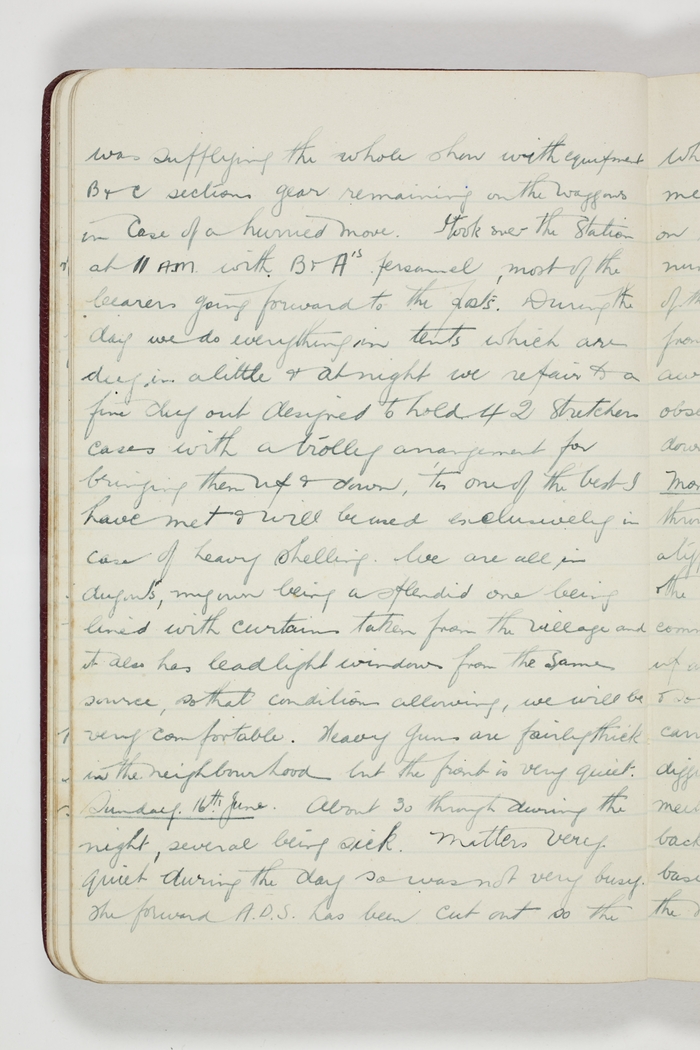 was supplying the whole show with equipment
B & C sections gear remaining on the waggons
in case of a hurried move. I took over the Station
at 11 AM with B & A's personnel, most of the
bearers going forward to the posts. During the
day we do everything in tents which are
dug in a little & at night we repair to a
fine dug out designed to hold 42 Stretcher
cases with a trolley arrangement for
bringing them up & down, 'tis one of the best I
have met & will be used exclusively in
case of heavy shelling. We are all in
dugouts, my own being a splendid one being
lined with curtains taken from the village and
it also has leadlight windows from the same
source, so that conditions allowing, we will be
very comfortable. Heavy Guns are fairly thick
in the neighbourhood but the front is very quiet.
Sunday. 16th June. About 30 through during the
night, several being sick. Matters very
quiet during the day so was not very busy.
The forward A.D.S. has been cut out so the